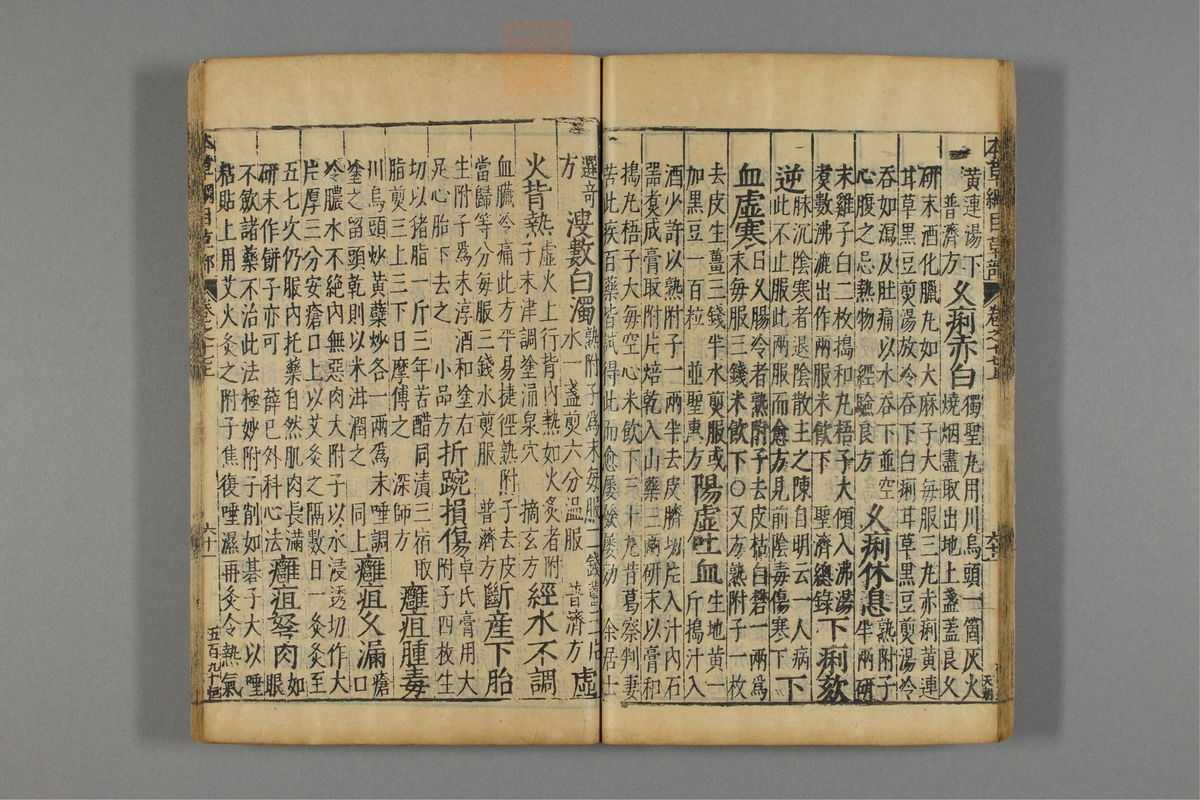 本草綱目草部 卷之十七
黃連湯下 久痢赤白 獨聖丸用川烏頭一箇灰火
普濟方 燒烟盡取出地上盞蓋良久
研末酒化臘丸如大麻子大每服三丸赤痢黃連
甘草黑豆煎湯放冷吞下白痢甘草黑豆煎湯冷
吞如瀉及肚痛以水吞下並空 久痢休息 熟附子
心腹之忌熱物 經驗良方 半兩研
末雞子白二枚搗和丸梧子大傾入沸湯 下痢欬
煮數沸漉出作兩服米飲下 聖濟總錄
逆 脉沉陰寒者退陰散主之陳自明云一人病 下
此不止服此兩服而愈方見前陰毒傷寒下
血虛寒 日久腸冷者熟附子去皮枯白礬一兩爲
末每服三錢米飲下○又方熟附子一枚
去皮生薑三錢半水煎服或 陽虛吐血 生地黃一
加黑豆一百粒 並聖惠方 斤搗汁入
酒少許以熟附子一兩半去皮臍切片入汁內石
器煮成膏取附片焙乾入山藥三兩研末以膏和
搗丸梧子大每空心米飲下三十丸昔葛察判妻
苦此疾百藥皆試得此而愈屢發屢効 余居士
選奇 溲數白濁 熟附子爲末每服二錢薑三片
方 水一盞煎六分溫服 普濟方 虛
火背熱 虛火上行背內熱如火灸者附 經水不調
子末津調塗涌泉穴 摘玄方
血臟冷痛此方平易捷徑熟附子去皮 斷産下胎
當歸等分每服三錢水煎服 普濟方
生附子爲末淳酒和塗右 折踠損傷 卓氏膏用大
足心胎下去之 小品方 附子四枚生
切以猪脂一斤三年苦醋同漬三宿取 癰疽腫毒
脂煎三上三下日摩傅之 深師方
川烏頭炒黄蘗炒各一兩爲末唾調 癰疽久漏 瘡口
塗之留頭乾則以米泔潤之 同上
冷膿水不絕內無惡肉大附子以水浸透切作大
片厚三分安瘡口上以艾灸之隔數日一灸灸至
五七次仍服內托藥自然肌肉長滿 癰疽弩肉 如眼
研末作餅子亦可 薛已外科心法
不斂諸藥不治此法極妙附子削如碁子大以唾
粘貼上用艾火灸之附子焦復唾濕再灸令熱氣
本草綱目草部 卷之十七 六十一